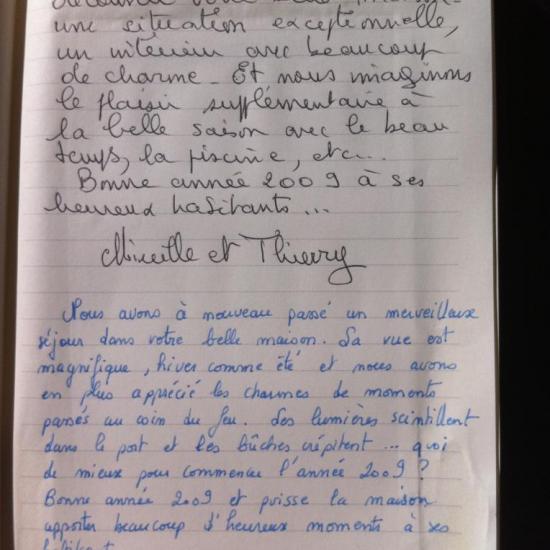 découvrir votre belle
une situation exceptionnelle,
un intérieur avec beaucoup
de charme - Et nous imaginons
le plaisir supplémentaire à
la belle saison avec le beau
temps, la piscine, etc...
Bonne année 2009 à ses
heureux habitants...
Mireille et Thierry
Nous avons à nouveau passé un merveilleux
séjour dans votre belle maison. Sa vue est
magnifique, hiver comme été et nous avons
en plus apprécié les charmes de moments
passés au coin du feu. Les lumières scintillent
dans le port et les bûches crépitent... quoi
de mieux pour commencer l'année 2009 ?
Bonne année 2009 et puisse la maison
apporter beaucoup d'heureux moments à ses